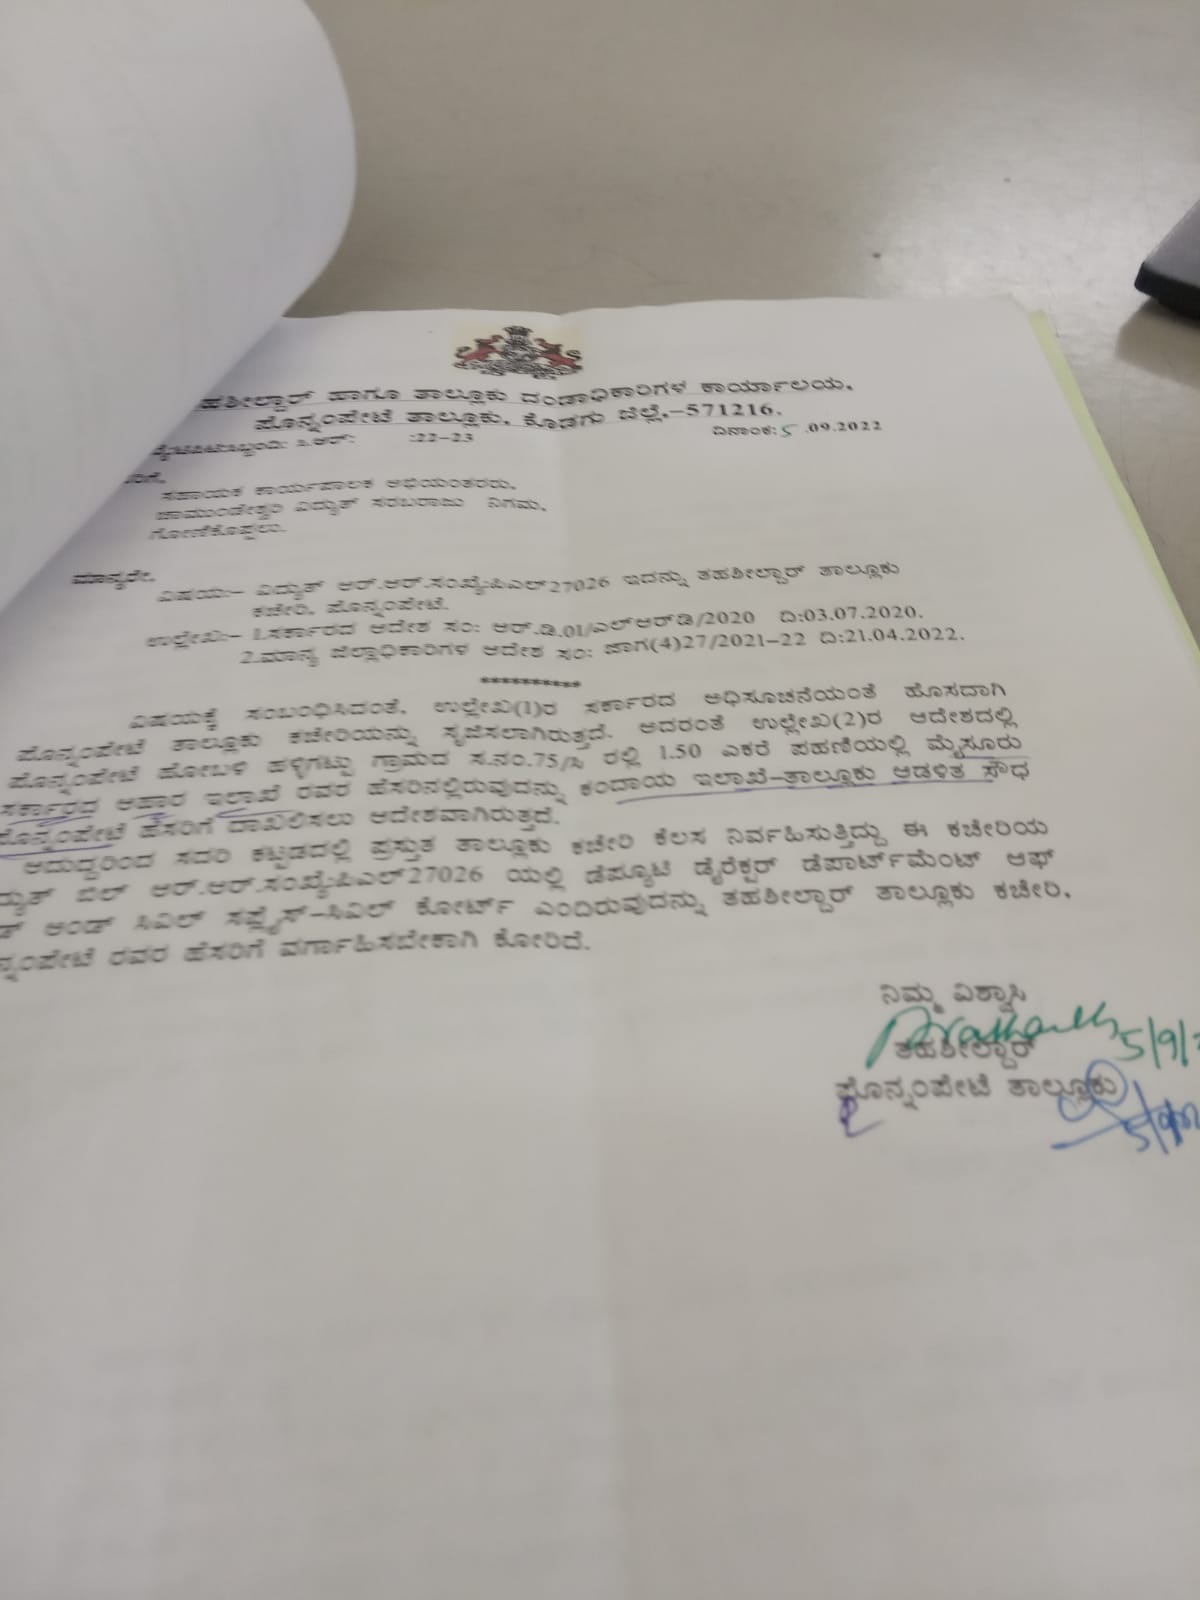 ಹಶೀಲ್ದಾರ್ ಹಾಗೂ ತಾಲ್ಲೂಕು ದಂಡಾಧಿಕಾರಿಗಳ ಕಾರ್ಯಾಲಯ,
ಪೊನ್ನಂಪೇಟೆ ತಾಲ್ಲೂಕು, ಕೊಡಗು ಜಿಲ್ಲೆ,-571216.
ಸಿ.ಆರ್: :22-23 ದಿನಾಂಕ:5 .09.2022
ರಿಗೆ,
ಸಹಾಯಕ ಕಾರ್ಯಪಾಲಕ ಅಭಿಯಂತರರು,
ಚಾಮುಂಡೇಶ್ವರಿ ವಿದ್ಯುತ್ ಸರಬರಾಜು ನಿಗಮ,
ಗೋಣಿಕೊಪ್ಪಲು.
ಮಾನ್ಯರೇ,
ವಿಷಯ:- ವಿದ್ಯುತ್ ಆರ್.ಆರ್.ಸಂಖ್ಯೆ:ಪಿಎಲ್27026 ಇದನ್ನು ತಹಶೀಲ್ದಾರ್ ತಾಲ್ಲೂಕು
ಕಚೇರಿ, ಪೊನ್ನಂಪೇಟೆ.
ಉಲ್ಲೇಖ:- 1.ಸರ್ಕಾರದ ಆದೇಶ ಸಂ: ಆರ್.ಡಿ.01/ಎಲ್ಆರ್‌ಡಿ/2020 ದಿ:03.07.2020.
2.ಮಾನ್ಯ ಜಿಲ್ಲಾಧಿಕಾರಿಗಳ ಆದೇಶ ಸಂ: ಜಾಗ(4)27/2021-22 ದಿ:21.04.2022.
**********
ವಿಷಯಕ್ಕೆ ಸಂಬಂಧಿಸಿದಂತೆ, ಉಲ್ಲೇಖ(1)ರ ಸರ್ಕಾರದ ಅಧಿಸೂಚನೆಯಂತೆ ಹೊಸದಾಗಿ
ಪೊನ್ನಂಪೇಟೆ ತಾಲ್ಲೂಕು ಕಚೇರಿಯನ್ನು ಸೃಜಿಸಲಾಗಿರುತ್ತದೆ. ಅದರಂತೆ ಉಲ್ಲೇಖ(2)ರ ಆದೇಶದಲ್ಲಿ
ಪೊನ್ನಂಪೇಟೆ ಹೋಬಳಿ ಹಳ್ಳಿಗಟ್ಟು ಗ್ರಾಮದ ಸ.ನಂ.75/ಸಿ ರಲ್ಲಿ 1.50 ಎಕರೆ ಪಹಣಿಯಲ್ಲಿ ಮೈಸೂರು
ಸರ್ಕಾರದ ಆಹಾರ ಇಲಾಖೆ ರವರ ಹೆಸರಿನಲ್ಲಿರುವುದನ್ನು ಕಂದಾಯ ಇಲಾಖೆ-ತಾಲ್ಲೂಕು ಆಡಳಿತ ಸೌಧ
ಪೊನ್ನಂಪೇಟೆ ಹೆಸರಿಗೆ ದಾಖಲಿಸಲು ಆದೇಶವಾಗಿರುತ್ತದೆ.
ಆದುದ್ದರಿಂದ ಸದರಿ ಕಟ್ಟಡದಲ್ಲಿ ಪ್ರಸ್ತುತ ತಾಲ್ಲೂಕು ಕಚೇರಿ ಕೆಲಸ ನಿರ್ವಹಿಸುತ್ತಿದ್ದು ಈ ಕಚೇರಿಯ
ದ್ಯುತ್ ಬಿಲ್ ಆರ್.ಆರ್.ಸಂಖ್ಯೆ:ಪಿಎಲ್27026 ಯಲ್ಲಿ ಡೆಪ್ಯೂಟಿ ಡೈರೆಕ್ಟರ್ ಡೆಪಾರ್ಟ್‌ಮೆಂಟ್ ಆಫ್
ಡ್ ಅಂಡ್ ಸಿವಿಲ್ ಸಪ್ಲೈಸ್-ಸಿವಿಲ್ ಕೋರ್ಟ್ ಎಂದಿರುವುದನ್ನು ತಹಶೀಲ್ದಾರ್ ತಾಲ್ಲೂಕು ಕಚೇರಿ,
ನ್ನಂಪೇಟೆ ರವರ ಹೆಸರಿಗೆ ವರ್ಗಾಹಿಸಬೇಕಾಗಿ ಕೋರಿದೆ.
ನಿಮ್ಮ ವಿಶ್ವಾಸಿ
5/9/
ತಹಶೀಲ್ದಾರ್
ಪೊನ್ನಂಪೇಟೆ ತಾಲ್ಲೂಕು